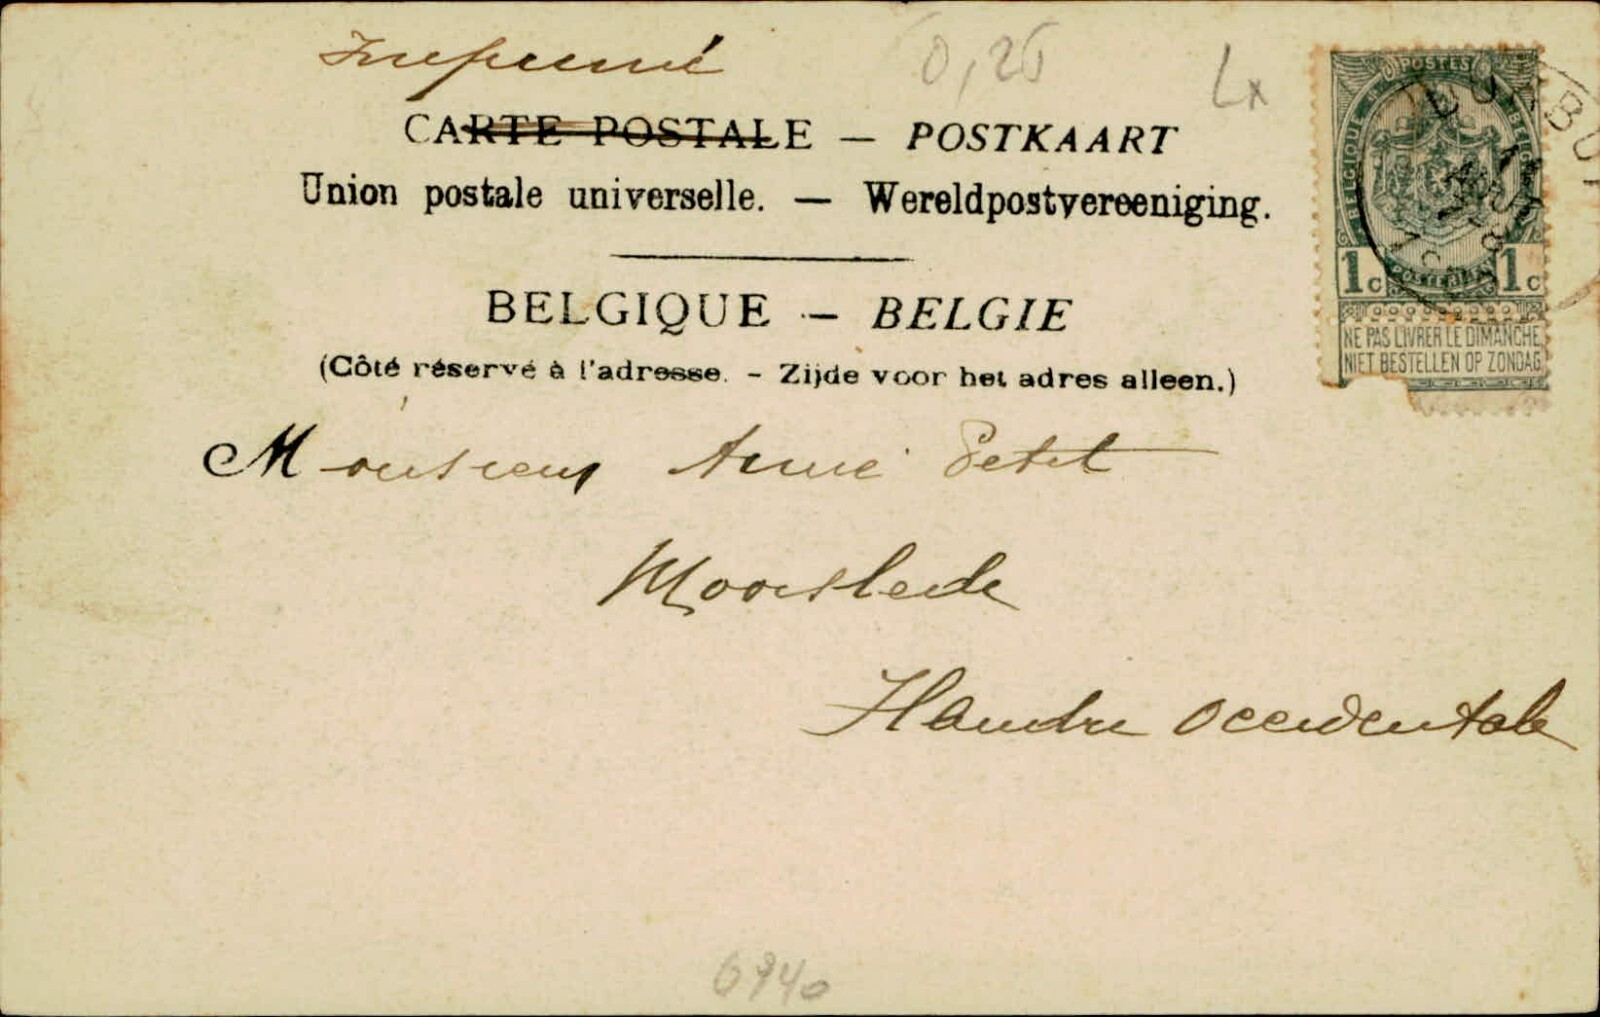 Imprimé
0,25
Lx
CARTE POSTALE — POSTKAART
Union postale universelle. — Wereldpostvereeniging.
BELGIQUE — BELGIE
(Côté réservé à l'adresse. - Zijde voor het adres alleen.)
POSTES
BELGIQUE
BELGIE
POSTERIJEN
1c 1c
NE PAS LIVRER LE DIMANCHE
NIET BESTELLEN OP ZONDAG
Monsieur Aimé Petit
Moorslede
Flandre Occidentale
6940